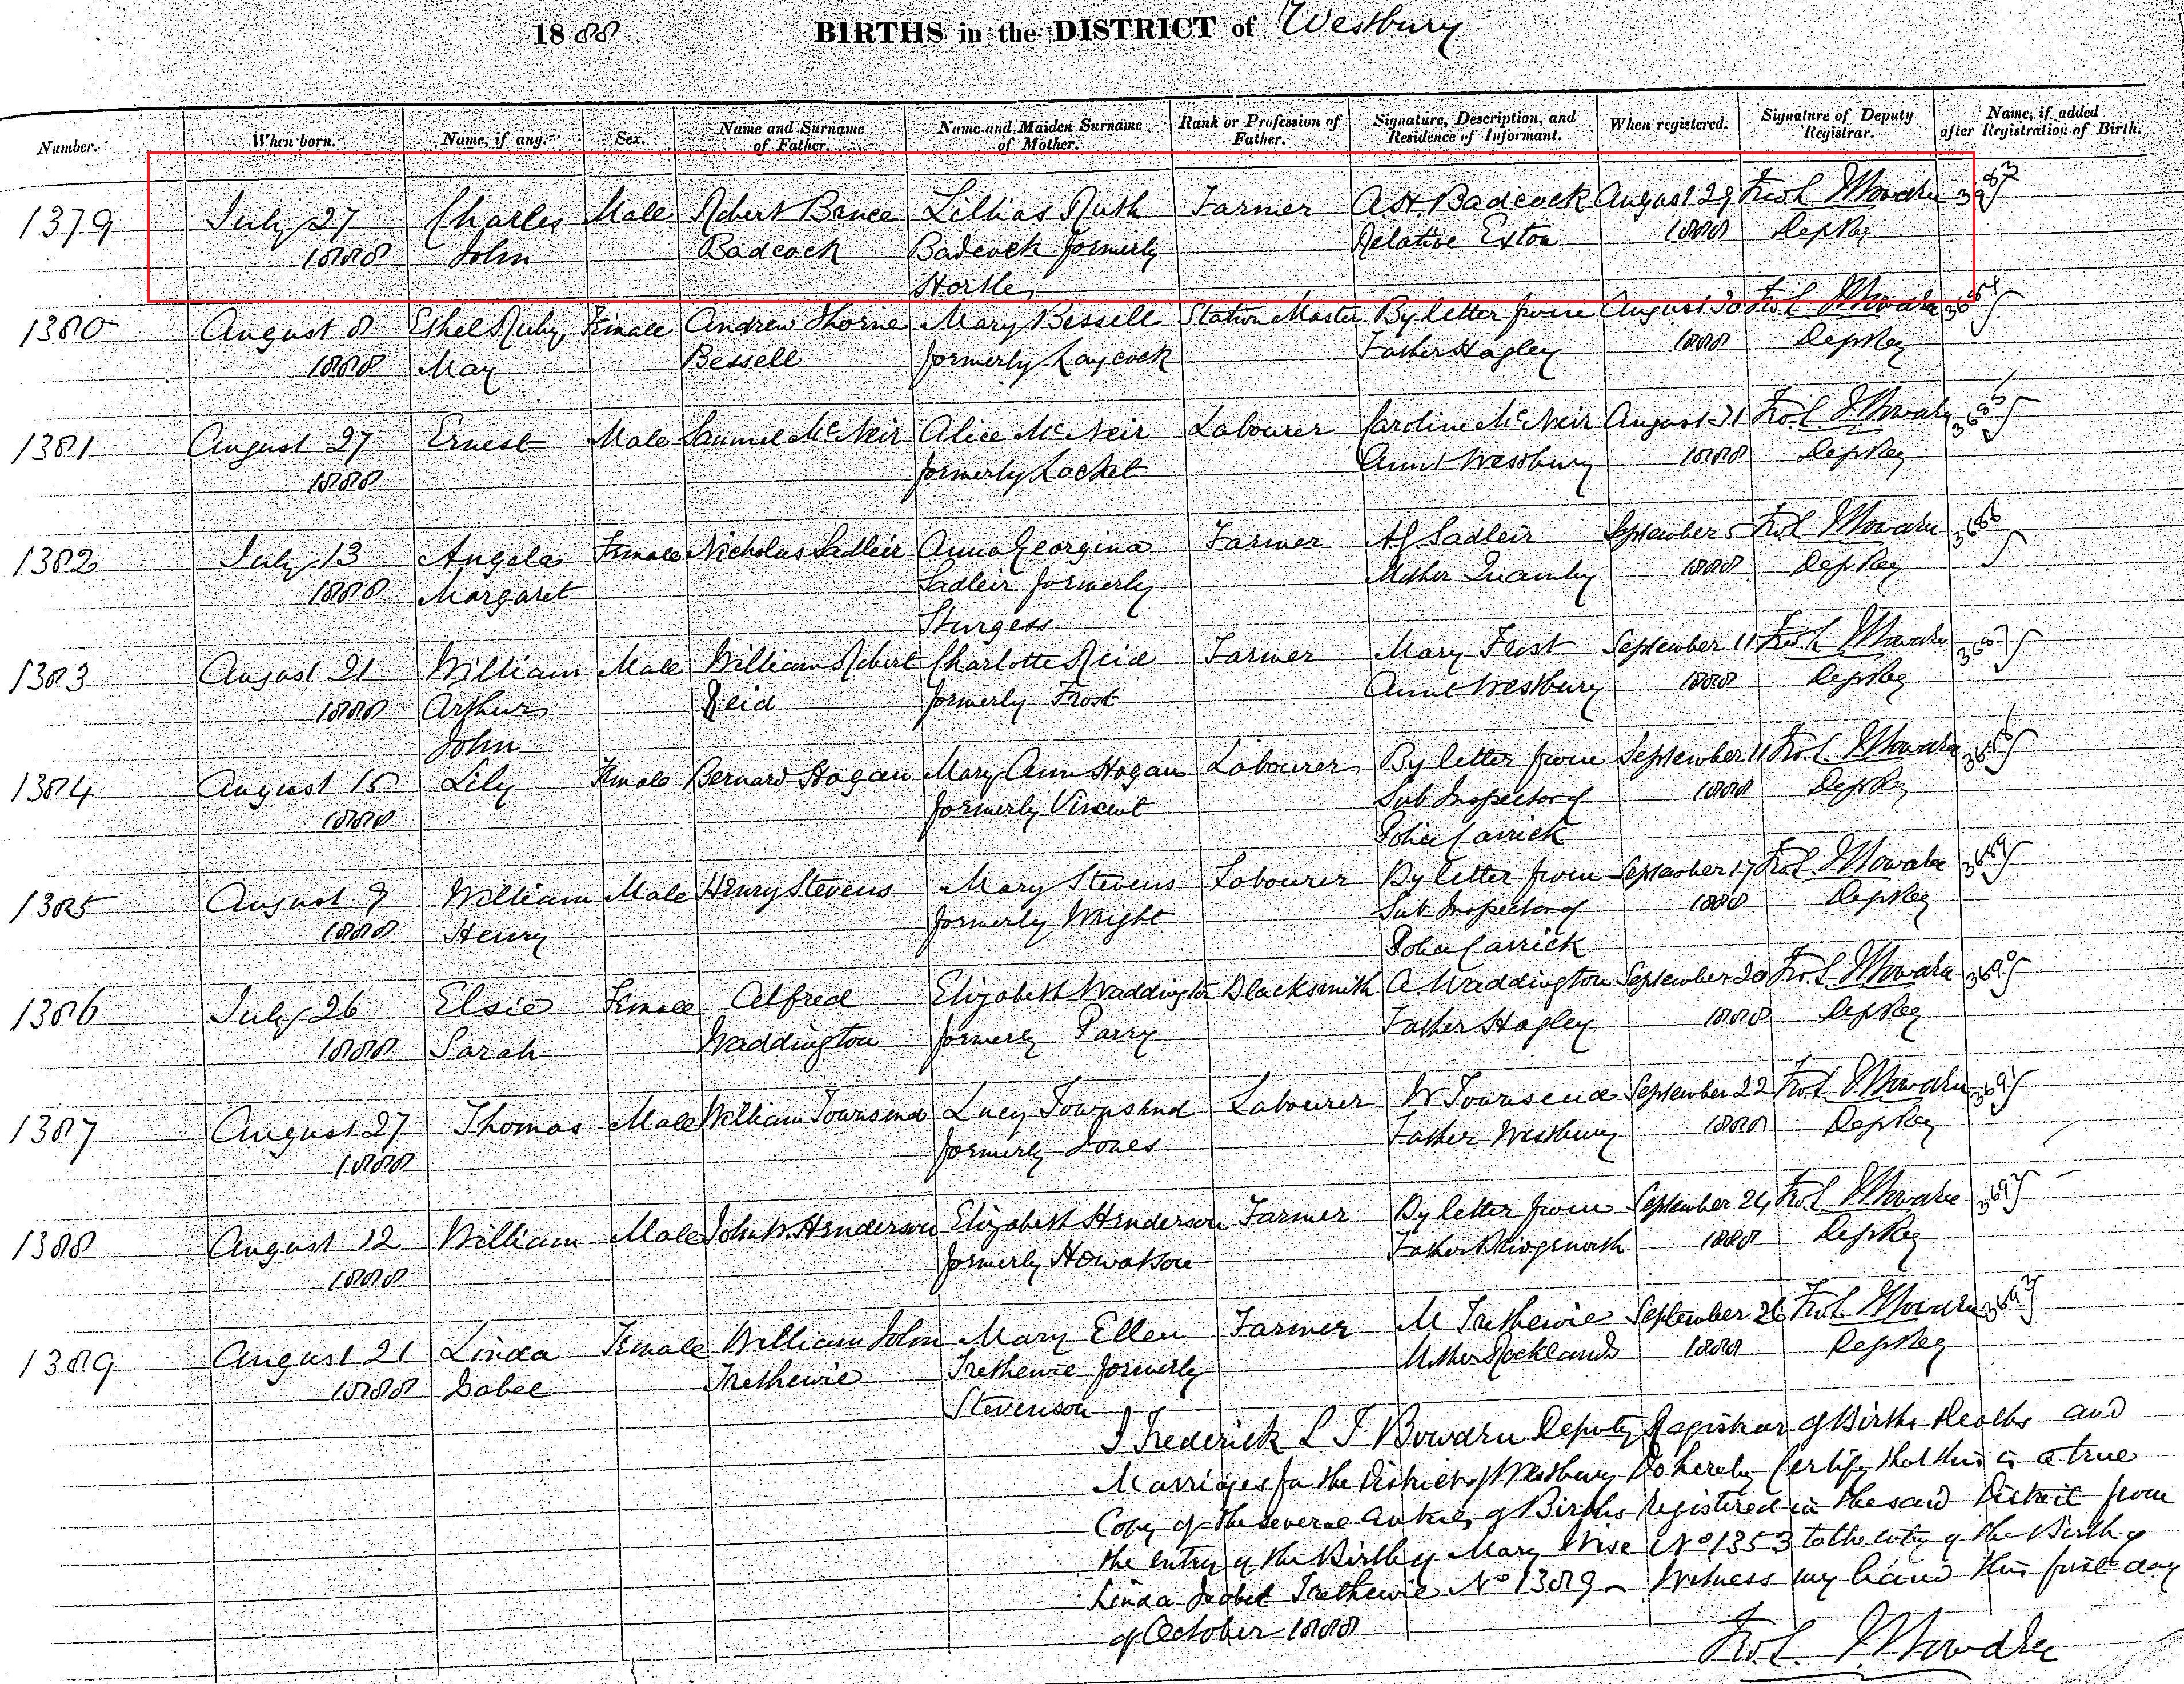 1888 BIRTHS in the DISTRICT of Westbury
Number. When born. Name, if any. Sex. Name and Surname of Father. Name and Maiden Surname of Mother. Rank or Profession of Father. Signature, Description, and Residence of Informant. When registered. Signature of Deputy Registrar. Name, if added after Registration of Birth.
1379 July 27 Charles Male Robert Bruce Lillias Ruth Farmer A H Badcock August 29
1888 John Badcock Badcock formerly Relative Exton 1888 Dep Reg
1380 August 8 Ethel Ruby Female Andrew Thorne Mary Bessell Station Master By letter from August 30 3684
1888 May Bessell formerly Laycock Father Hagley 1888 Dep Reg
1381 August 27 Ernest Male Samuel McNeir Alice McNeir Labourer Caroline McNeir August 31 3685
1888 formerly Locket Aunt Westbury 1888 Dep Reg
1382 July 13 Angela Female Nicholas Sadleir Anna Georgina Farmer Sadleir September 5 3686
1888 Margaret Sadleir formerly Mother Quamby 1888 Dep Reg
Sturgess
1383 August 21 William Male William Robert Charlotte Reid Farmer Mary Frost September 11 3687
1888 Arthur Reid formerly Frost Aunt Westbury 1888 Dep Reg
John
1384 August 15 Lily Female Bernard Hogan Mary Ann Hogan Labourer By letter from September 11 3688
1888 formerly Vincent Sub Inspector of 1888 Dep Reg
Police Carrick
1385 August 9 William Male Henry Stevens Mary Stevens Labourer By letter from September 17 3689
1888 Henry formerly Wright Sub Inspector of 1888 Dep Reg
Police Carrick
1386 July 26 Elsie Female Alfred Elizabeth Waddington Blacksmith A. Waddington September 20 3690
1888 Sarah Waddington formerly Parry Father Hagley 1888 Dep Reg
1387 August 27 Thomas Male William Townsend Lucy Townsend Labourer W Townsend September 22 3691
1888 formerly Jones Father Westbury 1888 Dep Reg
1388 August 12 William Male John W. Henderson Elizabeth Henderson Farmer By letter from September 24 3692
1888 formerly Howatson Father Bridgenorth 1888 Dep Reg
1389 August 21 Linda Female William John Mary Ellen Farmer M Trethewie September 26 3693
1888 Isabel Trethewie Trethewie formerly Mother Rocklands 1888 Dep Reg
Stevenson
I Frederick L J Bowdru Deputy Registrar of Births Deaths and
Marriages for the District of Westbury Do hereby Certify that this is a true
Copy of the several entries of Births Registered in the said District from
the entry of the Birth of Mary Wise No 1353 to the entry of the Birth of
Linda Isabel Trethewie No 1389 - Witness my hand this first day
of October 1888